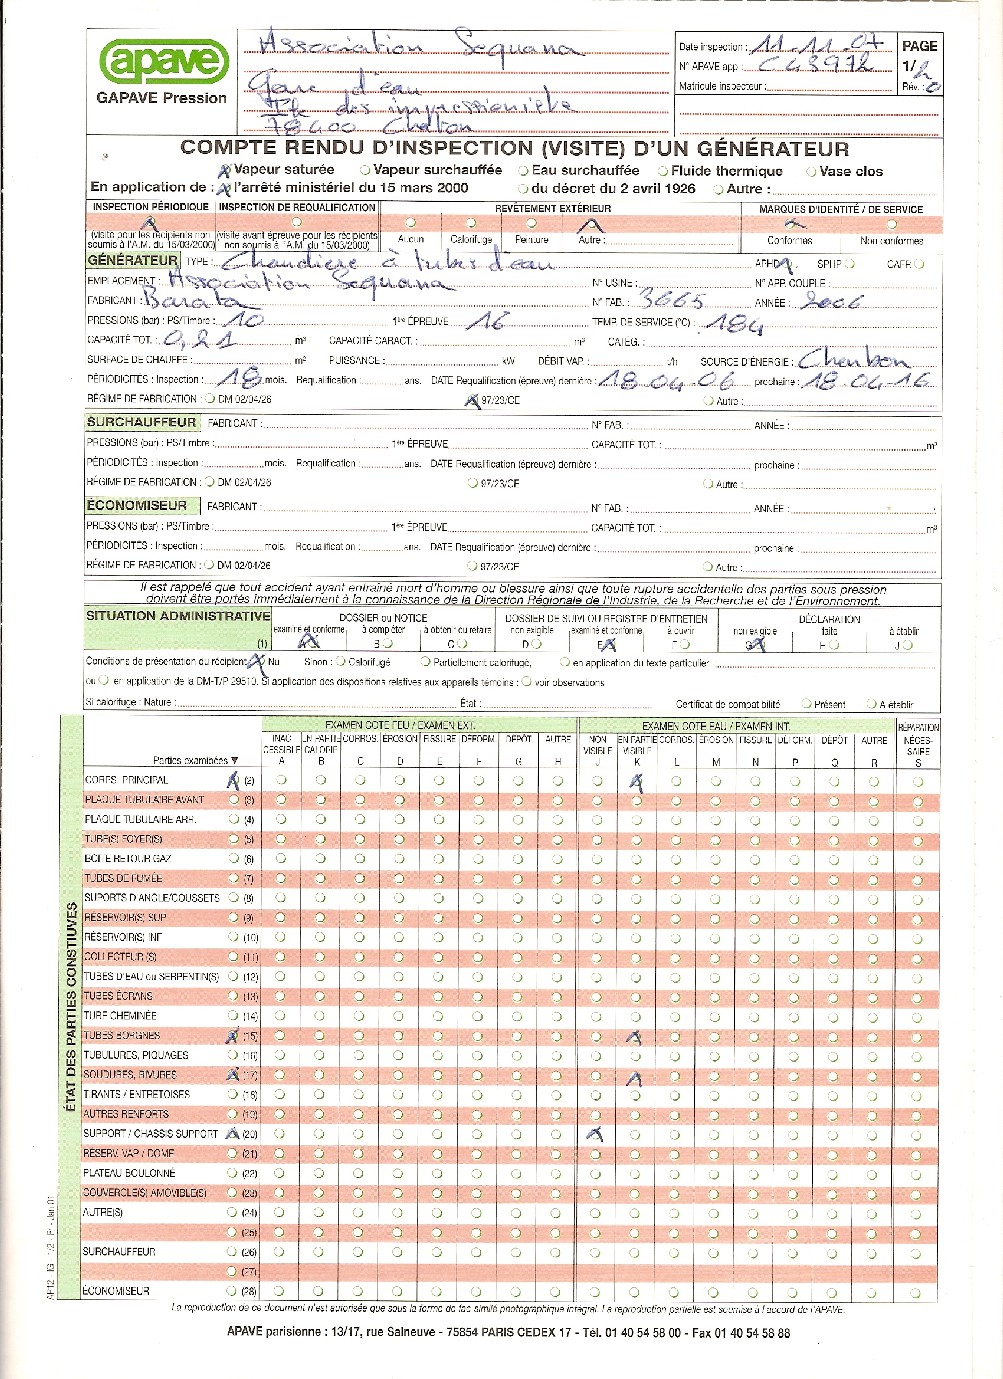 apave
GAPAVE Pression
Association Sequana
Gare d'eau
Ile des impressionniste
78400 Chatou
Date inspection : 11.11.07
N° APAVE app :
Matricule inspecteur :
PAGE
1/2
Rév. : 0
COMPTE RENDU D'INSPECTION (VISITE) D'UN GÉNÉRATEUR
Vapeur saturée Vapeur surchauffée Eau surchauffée Fluide thermique Vase clos
En application de : l'arrêté ministériel du 15 mars 2000 du décret du 2 avril 1926 Autre :
INSPECTION PÉRIODIQUE INSPECTION DE REQUALIFICATION REVÊTEMENT EXTÉRIEUR MARQUES D'IDENTITÉ / DE SERVICE
(visite pour les récipients non soumis à l'A.M. du 15/03/2000) (visite avant épreuve pour les récipients non soumis à l'A.M. du 15/03/2000) Aucun Calorifuge Peinture Autre : Conformes Non conformes
GÉNÉRATEUR TYPE : Chaudière à tubes d'eau SPHP CAFR
EMPLACEMENT : Association Sequana N° USINE : N° APP. COUPLE :
FABRICANT : Barata N° FAB. : 3665 ANNÉE : 2006
PRESSIONS (bar) : PS/Timbre : 10 1ère ÉPREUVE 16 TEMP. DE SERVICE (°C) : 184
CAPACITÉ TOT. : 0,21 m³ CAPACITÉ CARACT. : m³ CATEG. :
SURFACE DE CHAUFFE : m² PUISSANCE : kW DÉBIT VAP. : t/h SOURCE D'ÉNERGIE : Charbon
PÉRIODICITÉS : Inspection : 18 mois. Requalification : ans. DATE Requalification (épreuve) dernière : 18.04.06 prochaine : 18.04.16
RÉGIME DE FABRICATION : DM 02/04/26 97/23/CE Autre :
SURCHAUFFEUR FABRICANT : N° FAB. : ANNÉE :
PRESSIONS (bar) : PS/Timbre : 1ère ÉPREUVE CAPACITÉ TOT. : m³
PÉRIODICITÉS : Inspection : mois. Requalification : ans. DATE Requalification (épreuve) dernière : prochaine :
RÉGIME DE FABRICATION : DM 02/04/26 97/23/CE Autre :
ÉCONOMISEUR FABRICANT : N° FAB. : ANNÉE :
PRESSIONS (bar) : PS/Timbre : 1ère ÉPREUVE CAPACITÉ TOT. : m³
PÉRIODICITÉS : Inspection : mois. Requalification : ans. DATE Requalification (épreuve) dernière : prochaine :
RÉGIME DE FABRICATION : DM 02/04/26 97/23/CE Autre :
Il est rappelé que tout accident ayant entraîné mort d'homme ou blessure ainsi que toute rupture accidentelle des parties sous pression
doivent être portés immédiatement à la connaissance de la Direction Régionale de l'Industrie, de la Recherche et de l'Environnement.
SITUATION ADMINISTRATIVE DOSSIER ou NOTICE DOSSIER DE SUIVI OU REGISTRE D'ENTRETIEN DÉCLARATION
examiné et conforme à compléter à obtenir ou refaire non exigible examiné et conforme à ouvrir non exigible faite à établir
(1) A B C D E F G H J
Conditions de présentation du récipient : Nu Sinon : Calorifugé Partiellement calorifugé, en application du texte particulier
ou en application de la DM-T/P 29510. Si application des dispositions relatives aux appareils témoins : voir observations
Si calorifuge : Nature : État : Certificat de compatibilité Présent A établir
EXAMEN COTE FEU / EXAMEN EXT. EXAMEN COTE EAU / EXAMEN INT. RÉPARATION
INACCESSIBLE EN PARTIE CALORIF CORROS. ÉROSION FISSURE DÉFORM. DÉPÔT AUTRE NON VISIBLE EN PARTIE VISIBLE CORROS. ÉROSION FISSURE DÉFORM. DÉPÔT AUTRE NÉCESSAIRE
Parties examinées ▼ A B C D E F G H J K L M N P Q R S
ÉTAT DES PARTIES CONSTIUVES
CORPS PRINCIPAL (2)
PLAQUE TUBULAIRE AVANT (3)
PLAQUE TUBULAIRE ARR. (4)
TUBE(S) FOYER(S) (5)
BOITE RETOUR GAZ (6)
TUBES DE FUMÉE (7)
SUPORTS D'ANGLE/GOUSSETS (8)
RÉSERVOIR(S) SUP (9)
RÉSERVOIR(S) INF (10)
COLLECTEUR (S) (11)
TUBES D'EAU ou SERPENTIN(S) (12)
TUBES ÉCRANS (13)
TUBE CHEMINÉE (14)
TUBES BORGNES (15)
TUBULURES, PIQUAGES (16)
SOUDURES, RIVURES (17)
TIRANTS / ENTRETOISES (18)
AUTRES RENFORTS (19)
SUPPORT / CHASSIS SUPPORT (20)
RÉSERV. VAP / DOME (21)
PLATEAU BOULONNÉ (22)
COUVERCLE(S) AMOVIBLE(S) (23)
AUTRE(S) (24)
(25)
SURCHAUFFEUR (26)
(27)
ÉCONOMISEUR (28)
La reproduction de ce document n'est autorisée que sous la forme de fac similé photographique intégral. La reproduction partielle est soumise à l'accord de l'APAVE.
APAVE parisienne : 13/17, rue Salneuve - 75854 PARIS CEDEX 17 - Tél. 01 40 54 58 00 - Fax 01 40 54 58 88